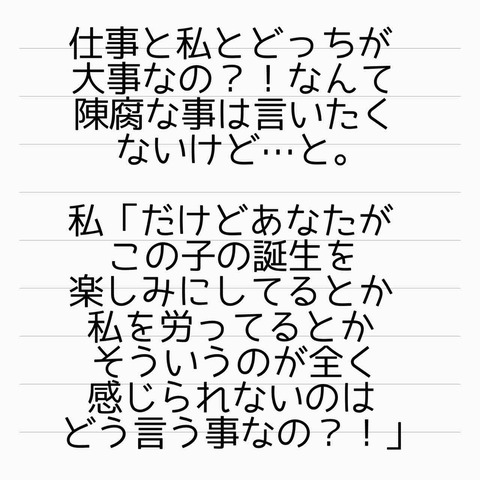 仕事と私とどっちが
大事なの？！なんて
陳腐な事は言いたく
ないけど…と。
私「だけどあなたが
この子の誕生を
楽しみにしてるとか
私を労ってるとか
そういうのが全く
感じられないのは
どう言う事なの？！」